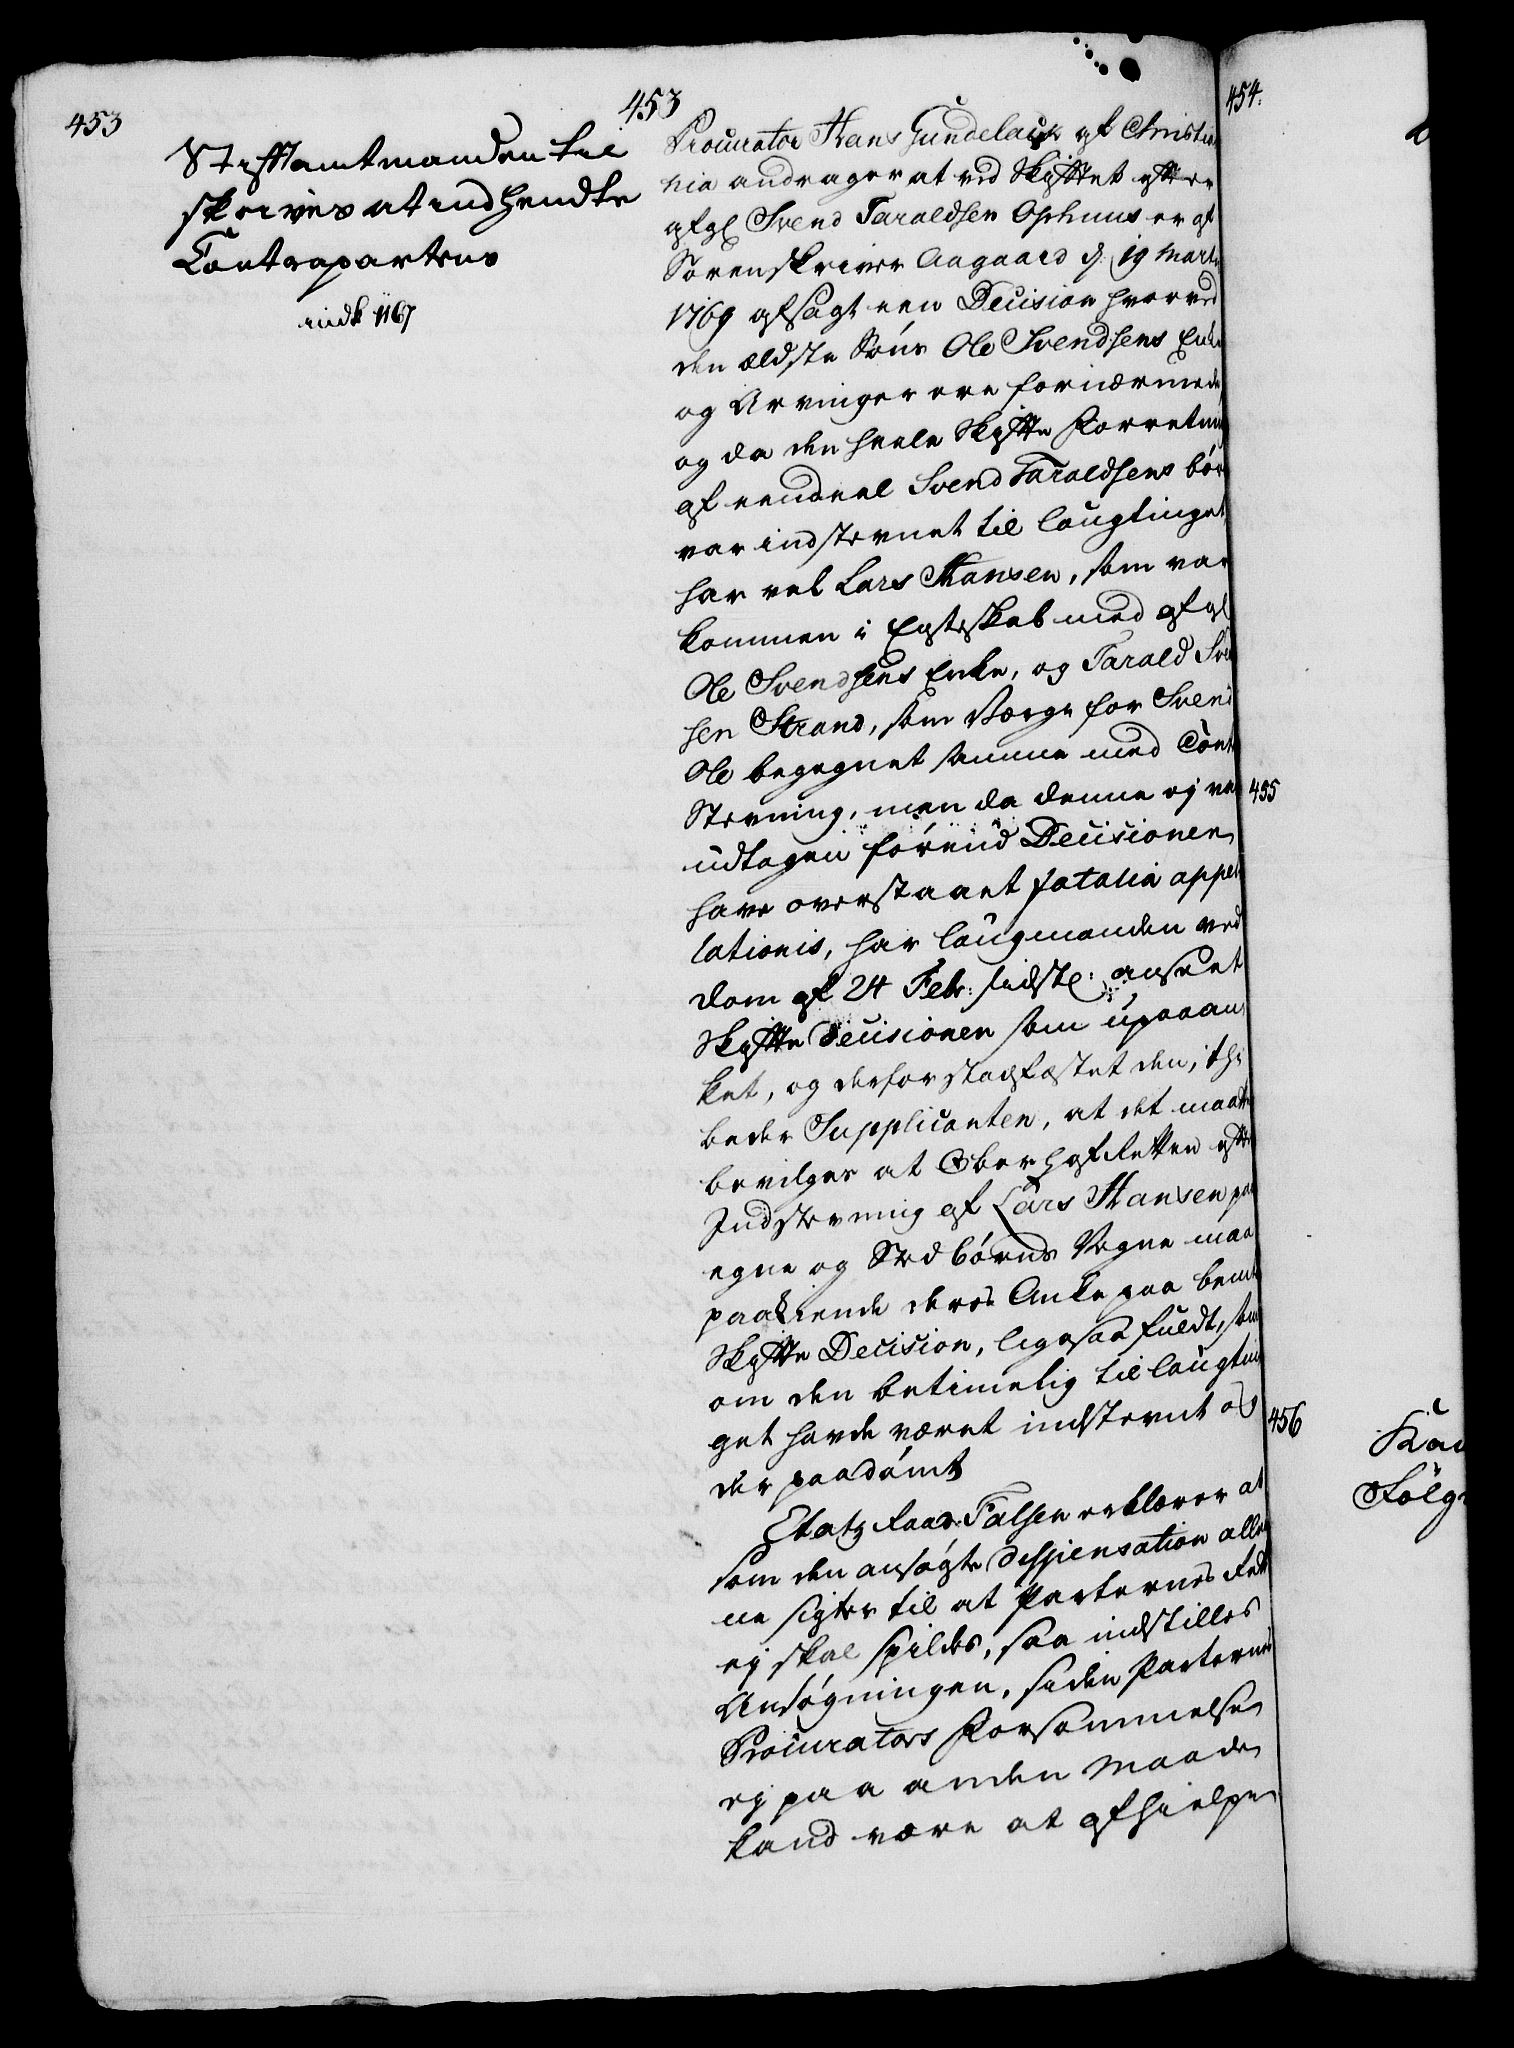 453
Stiftamtmanden til
skrives at indhendte
Contrapartens
indk 1167
453
Procurator Hans Gundelach af Christia
nia andrager at ved Skiftet efter
afgl Svend Taraldsen Ophuus er af
Sorenskriver Aagaard d: 19 Marti
1769 afsagt een Decision hvorved
den ældste Søns Ole Svendsens Enke
og Arvinger ere fornærmede
og da den heele Skifte Forretni
af eendeel Svend Taraldsens bør
var indstevnet til Laugtinget
har vel Lars Hansen, som var
kommen i Egteskab med afgl
Ole Svendsens Enke, og Tarald Sven
sen Strand, som Værge for Svend
Ole begegnet samme med Cont
Stevning, men da denne ej va
udtagen førend Decisionen
have overstaaet fatalia appel
lationis, har Laugmanden ved
Dom af 24 Febr: sidstl: anseet
Skifte Decisionen som upaaan
ket, og derfor stadfæstet den, thi
beder Supplicanten, at det maatte
bevilges at Oberhofretten efter
Indstevning af Lars Hansen paa
egne og Stedbørns Vegne maa
paakiende deres Anke paa bemte
Skifte Decision, ligesaa fuldt, som
om den betimelig til Laugtin
get havde været indstevnt og
der paadømt
Etatz Raad Falsen erklærer at
som den ansøgte Dispensation alle
ne sigter til at Parternes Rett
ej skal spildes, saa indstilles
Ansøgningen, siden Parternes
Procurators Forsømmelse
ej paa anden Maade
kand være at afhielpe
454.
455
456
Følg